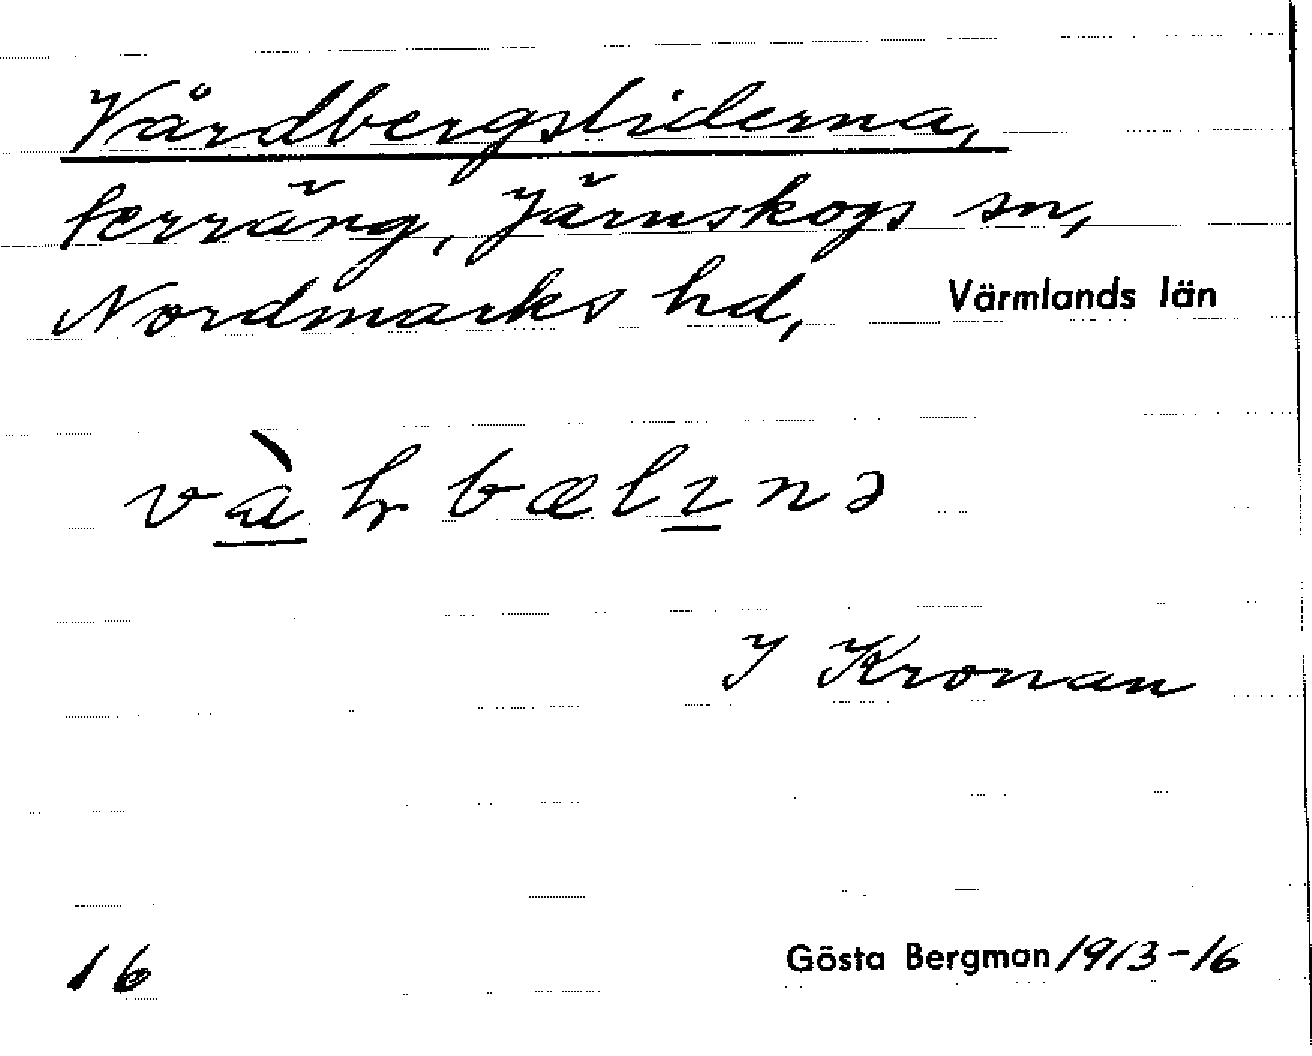 Vårdbergsliderna,
terräng, Järnskogs sn,
Nordmarks hd, Värmlands län
I Kronan
16 Gösta Bergman 1913-16